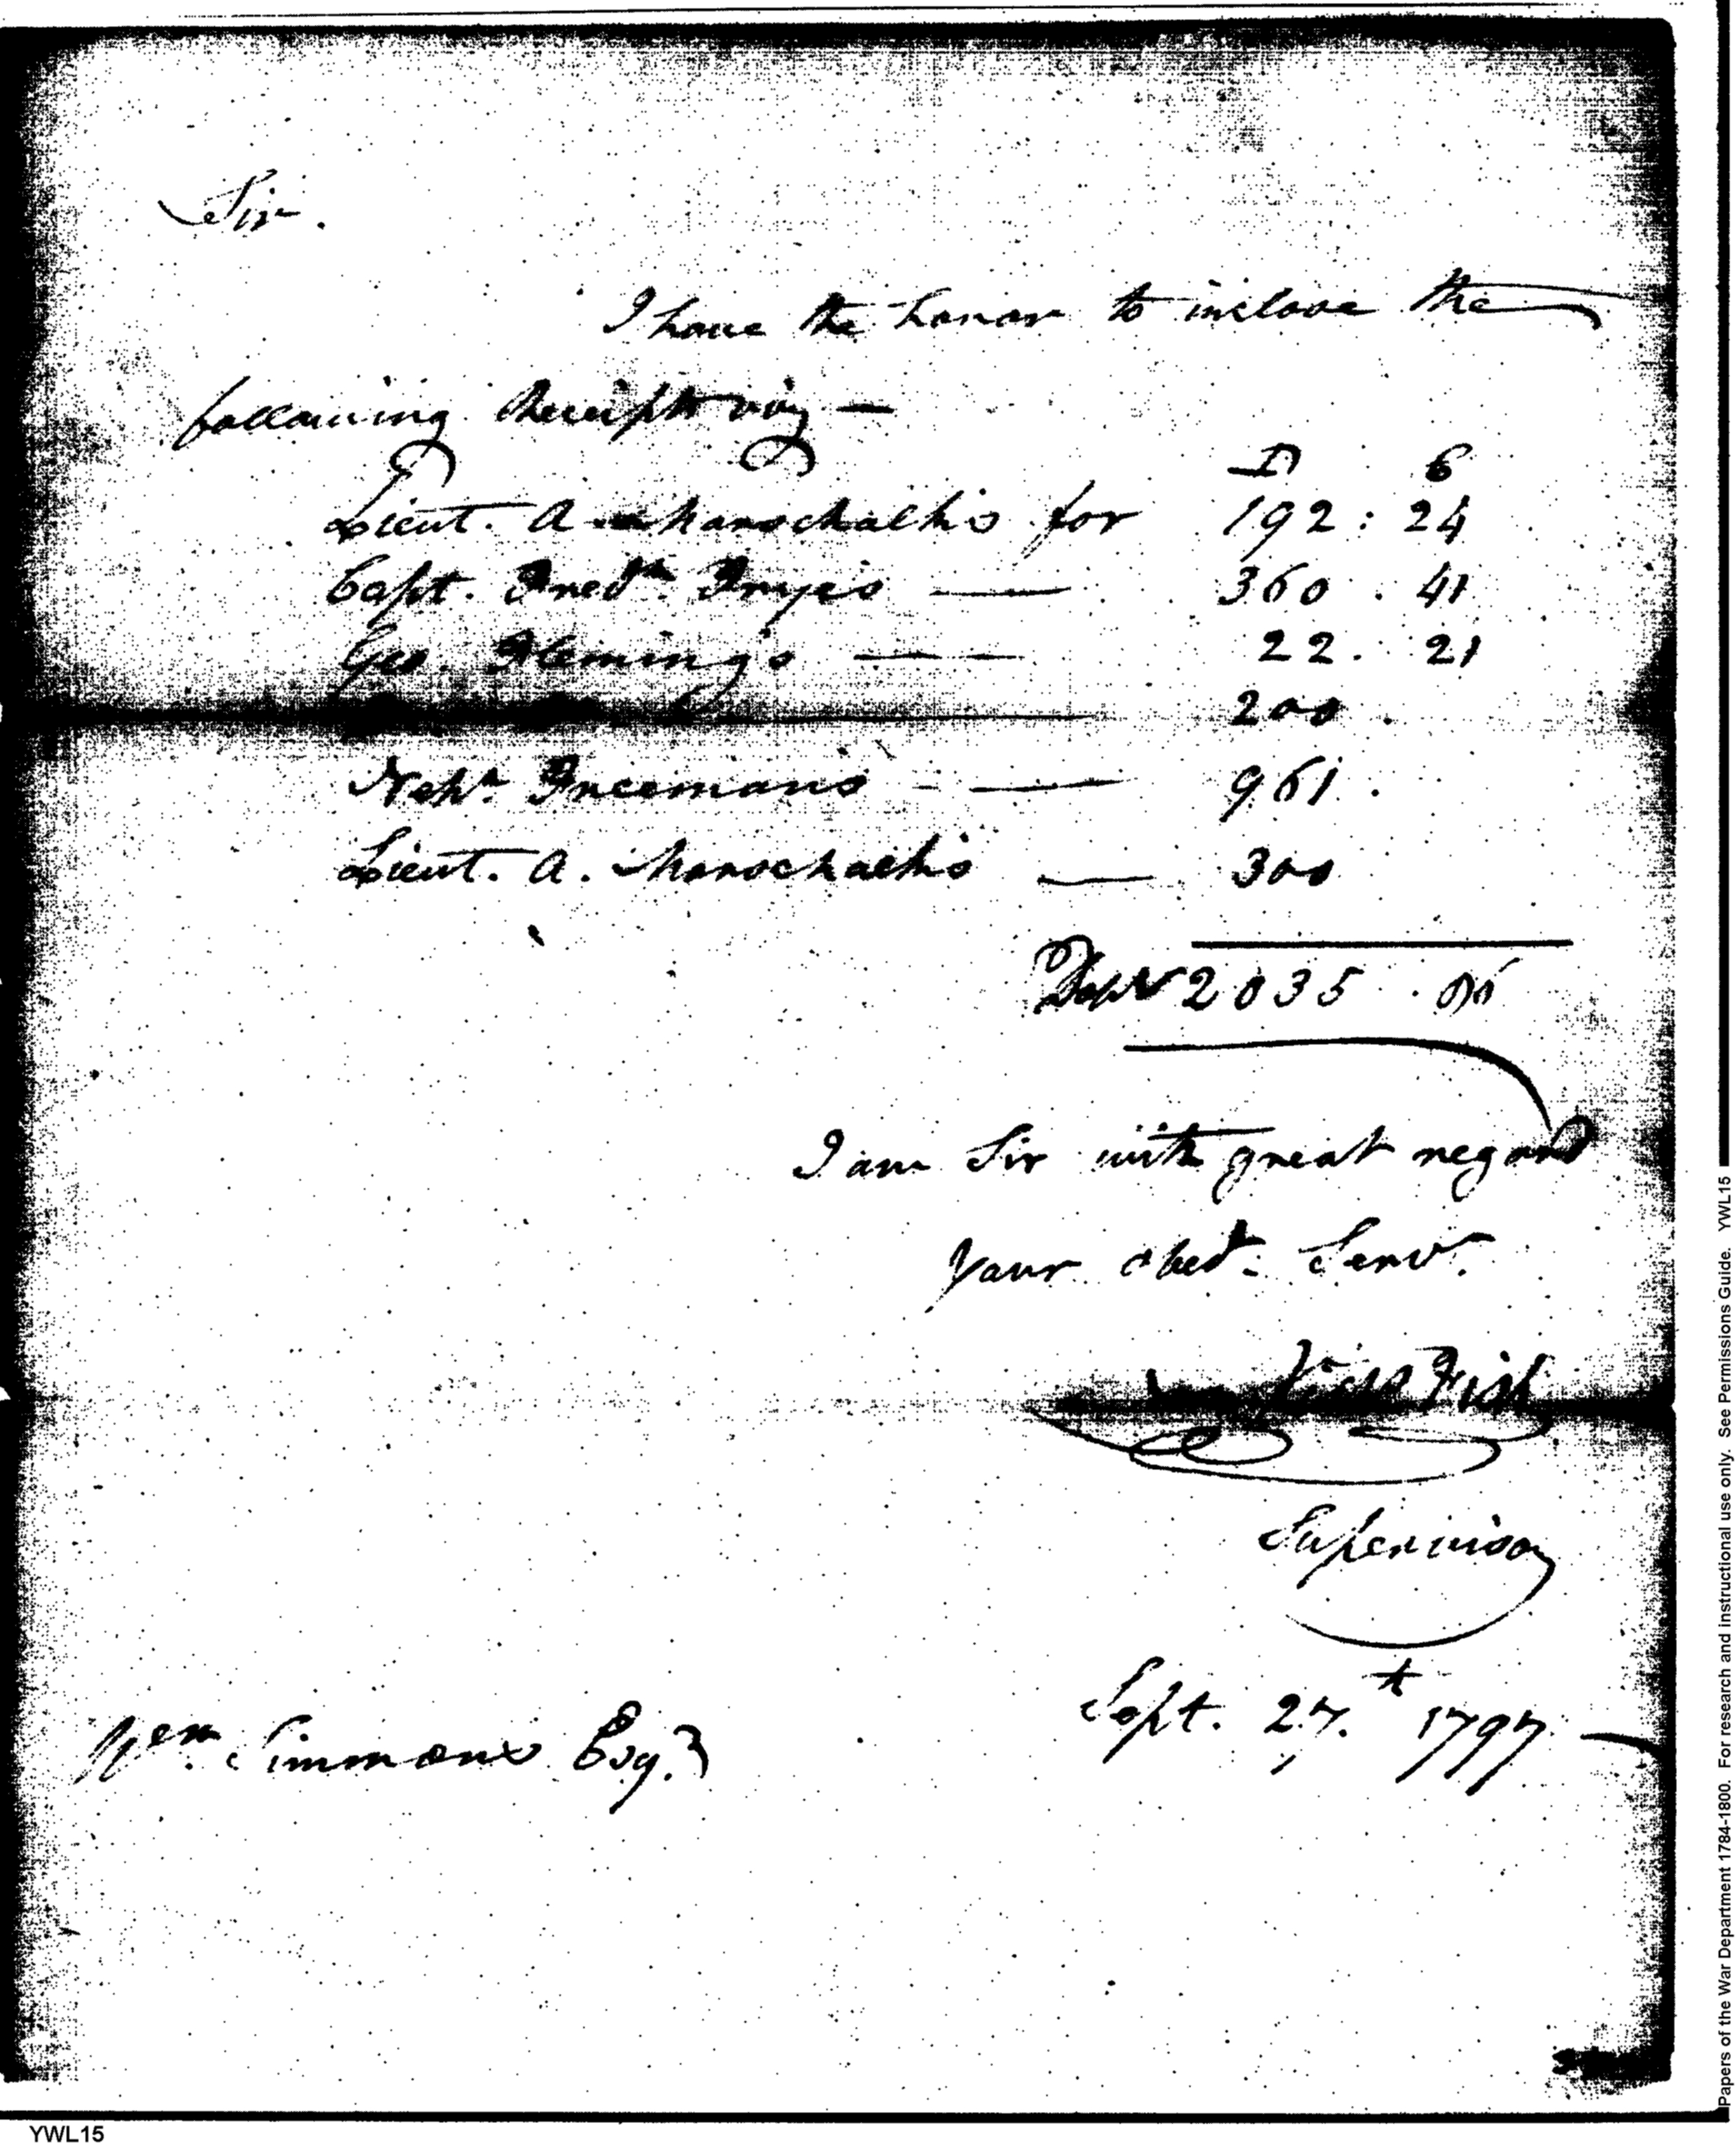 Sir.
I have the honor to inclose the
following Receipts viz —
D : C
Lieut. A Marschalk's for 192 : 24
Capt. Fredk. Frye's — 360 . 41
Geo. Fleming's — — 22 . 21
200 .
Nehh. Freeman's — 961 .
Lieut. A. Marschalk's — 300
Dolls 2035 . 86
I am Sir with great regard
Your obedt. Servt.
Nichs Fish
Supervisor
Sept. 27.th 1797
Wm. Simmons Esqr
YWL15
Papers of the War Department 1784-1800. For research and instructional use only. See Permissions Guide. YWL15